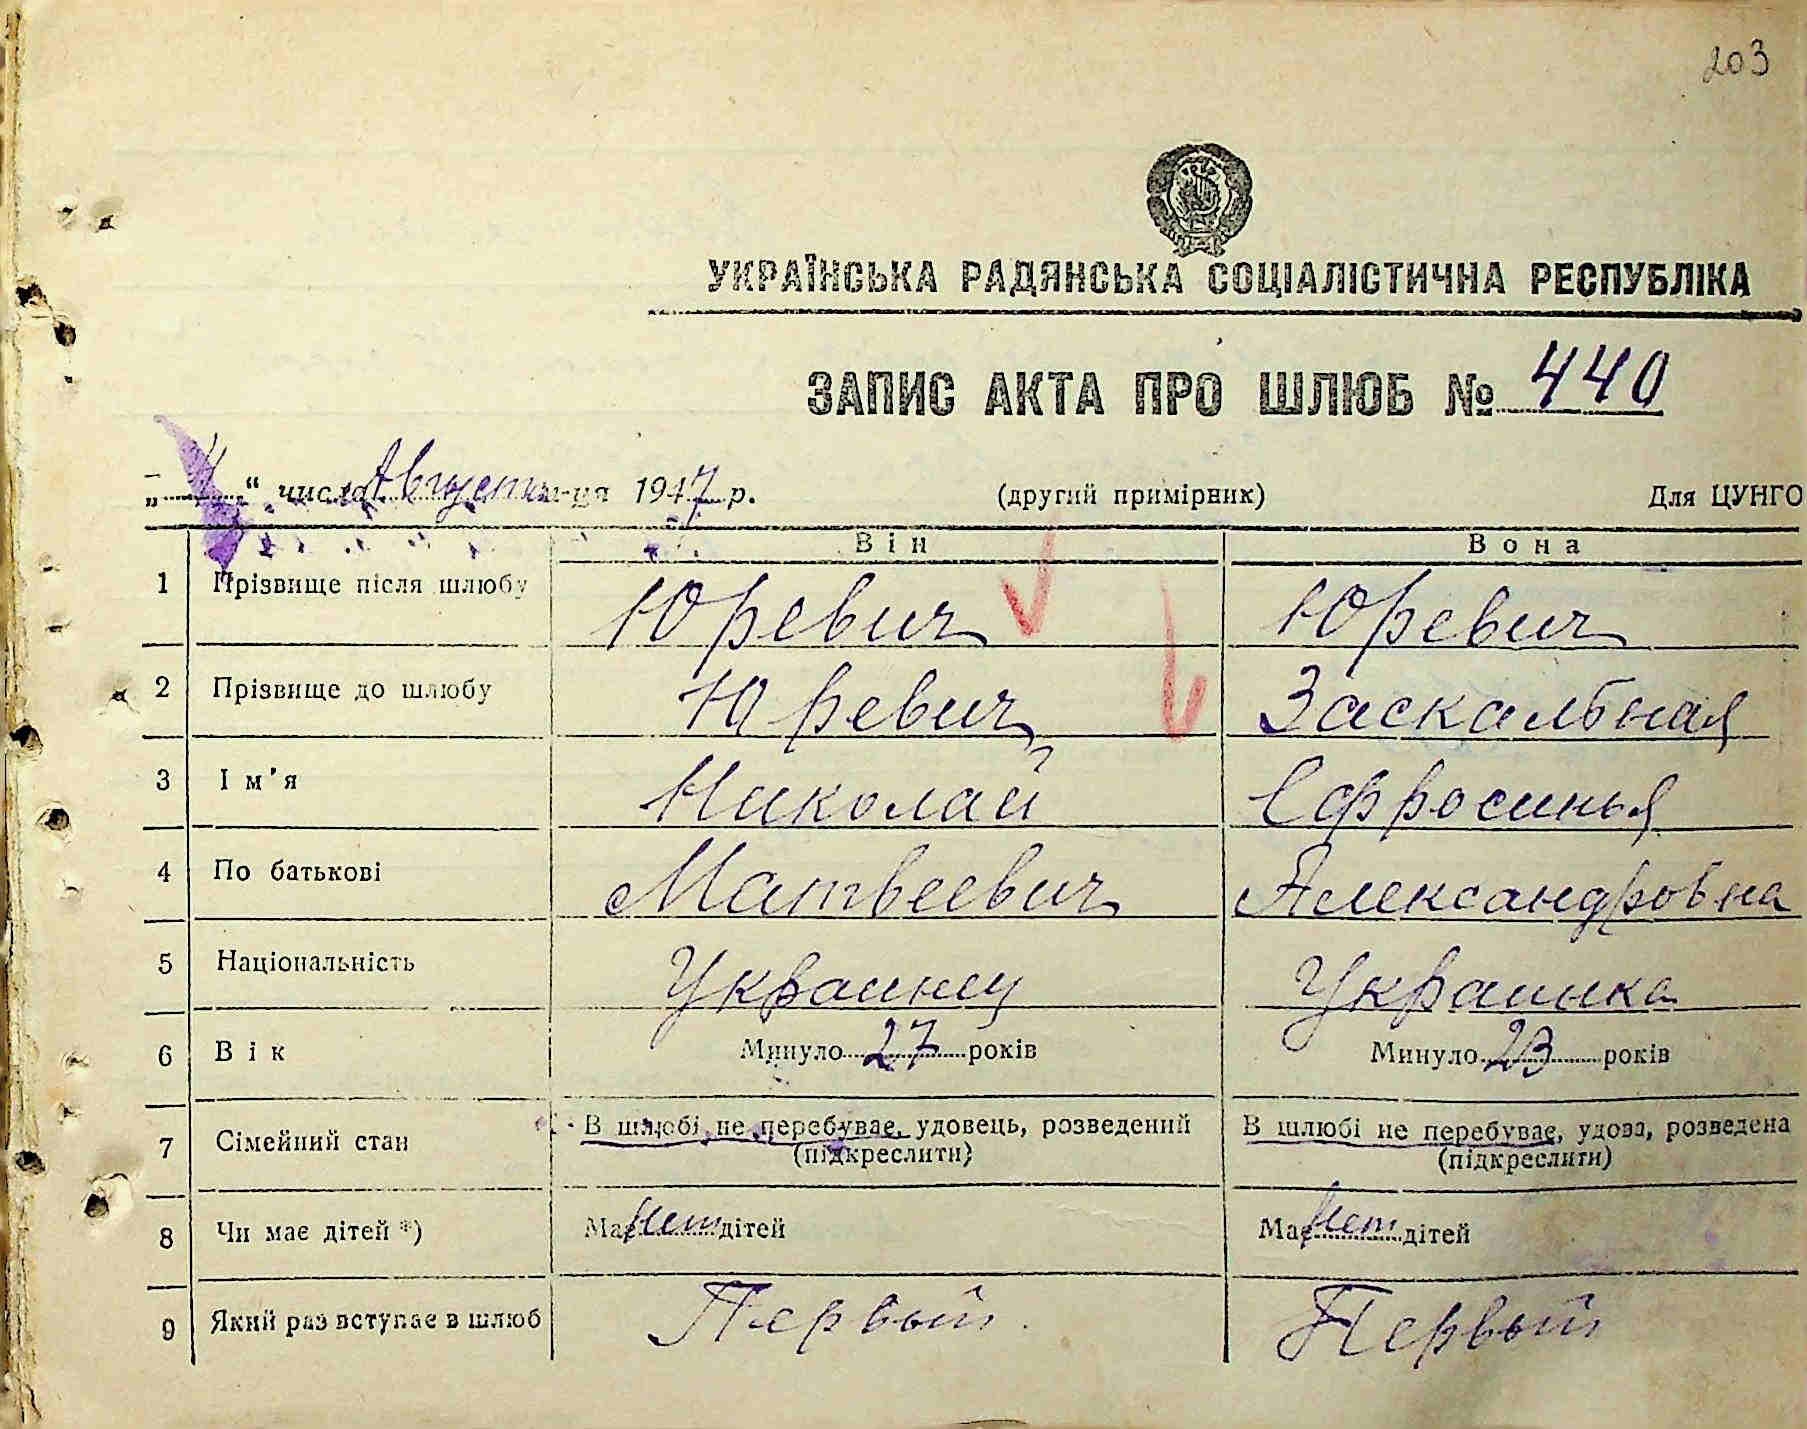 203
УКРАЇНСЬКА РАДЯНСЬКА СОЦІАЛІСТИЧНА РЕСПУБЛІКА
ЗАПИС АКТА ПРО ШЛЮБ № 440
„ “ число Августа м-ця 1947 р. (другий примірник) Для ЦУНГО
Він Вона
1 Прізвище після шлюбу Юревич Юревич
2 Прізвище до шлюбу Юревич Заскалбная
3 Ім'я Николай Ефросинья
4 По батькові Матвеевич Александровна
5 Національність Украинец Украинка
6 Вік Минуло 27 років Минуло 23 років
7 Сімейний стан В шлюбі не перебуває, удовець, розведений В шлюбі не перебуває, удова, розведена
(підкреслити) (підкреслити)
8 Чи має дітей *) Має Нет дітей Має Нет дітей
9 Який раз вступає в шлюб Первый Первый